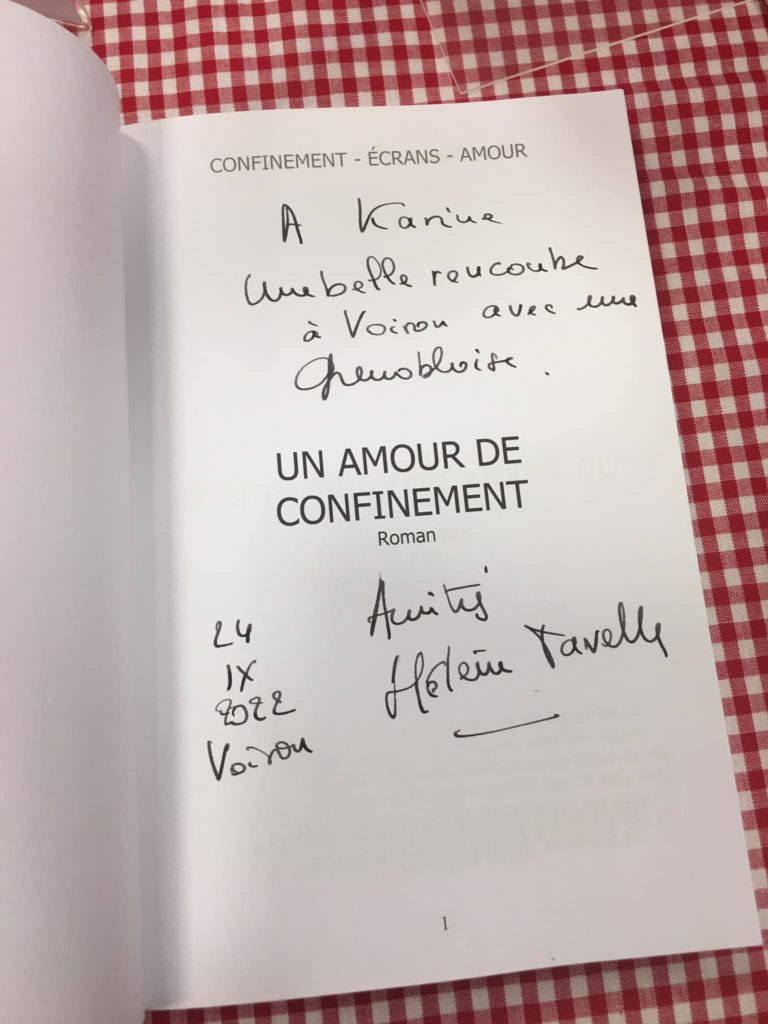 CONFINEMENT - ÉCRANS - AMOUR
A Karine
Une belle rencontre
à Voiron avec une
Grenobloise.
UN AMOUR DE
CONFINEMENT
Roman
Amitiés
Hélène Tavelle
24
IX
2022
Voiron
1